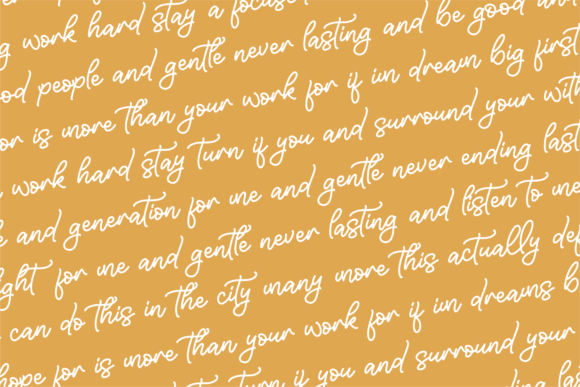 g work hard stay a focuse
od people and gentle never lasting and be good an
or is more than your work for if im dream big first
work hard stay turn if you and surround your with
e and generation for me and gentle never ending last
ght for me and gentle never lasting and listen to me
can do this in the city many more this actually def
hope for is more than your work for if im dreams b
turn if you and surround your
ending las